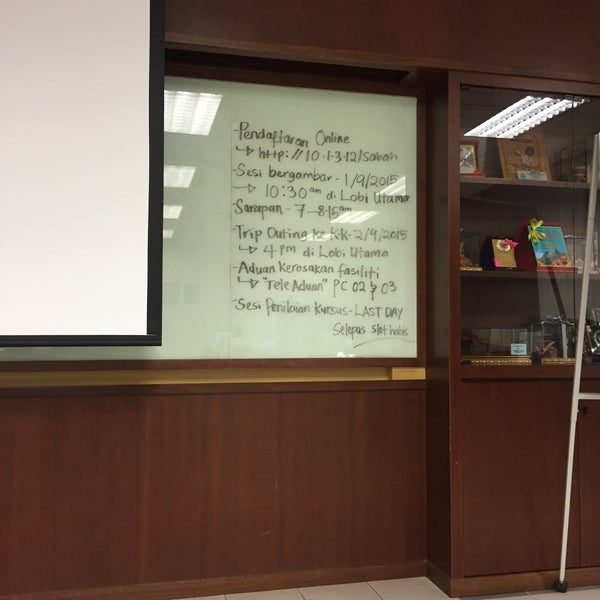 -Pendaftaran Online
↳ http://10.1.3.12/sabah
-Sesi bergambar - 1/9/2015
↳ 10:30am di Lobi Utama
Sarapan - 7 - 8:15am
-Trip Outing ke KK - 2/9/2015
↳ 4pm di Lobi Utama
-Aduan Kerosakan fasiliti
↳ "Tele-Aduan" PC 02 & 03
-Sesi Penilaian Kursus - LAST DAY
Selepas Slot habis